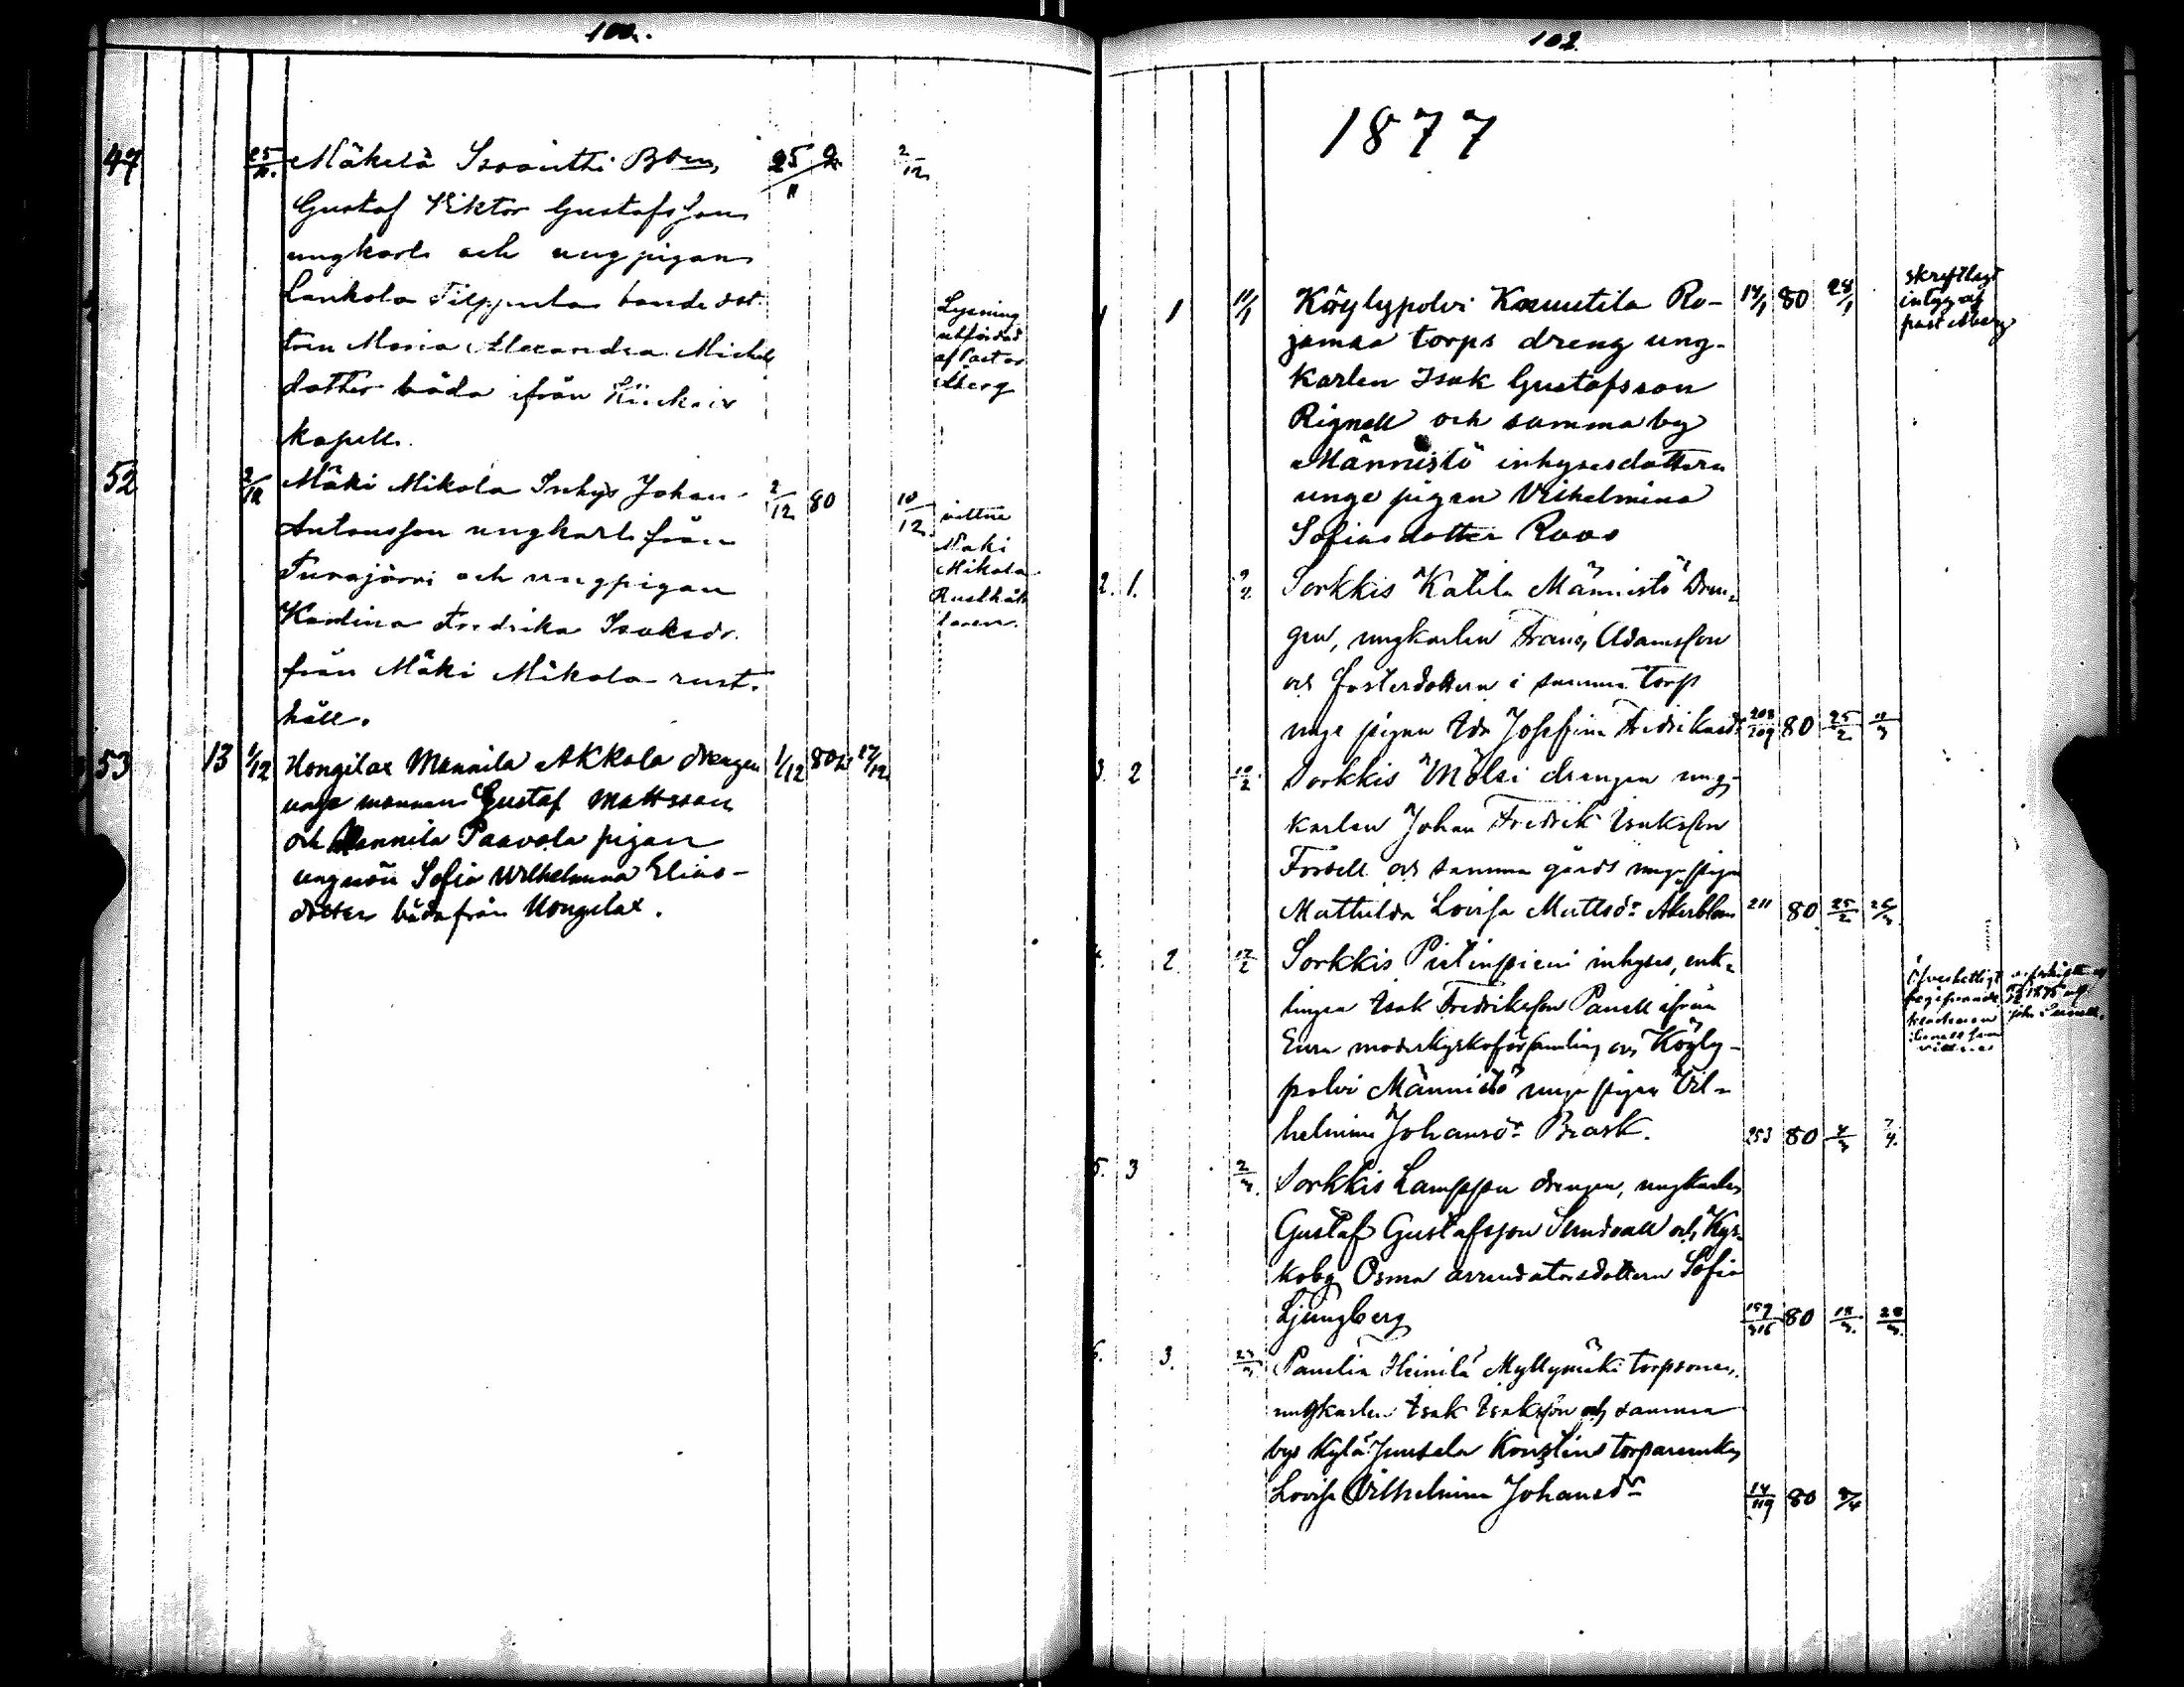 100.
47 25/11. Mäkelä Bson 25/11 2/12
Gustaf Viktor Gustafsson
ungkarl och ungpigan
Lankola bondedot
tren Maria Alexandra Michels
dotter båda ifrån
kapell.
Lysning
utfärdad
af Pastor
Åberg
52 2/12 Mäki Mikola Inhys Johan 2/12 80 10/12
Antonsson ungkarl från
och ungpigan
Karolina Fredrika Isaksdr.
från Mäki Mikola rust-
håll.
vittne
Mäki
Mikola
Rusthål-
laren.
53 13 1/12 Hongilax Mannila Akkola drengen 1/12 80 17/12
unge mannen Gustaf Mattsson
och Mannila Paavola pigan
ungmön Sofia Wilhelmina Elias-
dotter båda från Hongilax.
102
1877
1 1 11/1 Köylypolvi Kauutila Ro- 14/1 80 28/1
jamaa torps dreng ung-
karlen Isak Gustafsson
Rignell och samma by
Männistö inhysesdottern
unge pigan Vilhelmina
Sofiasdotter Roos
skriftligt
intyg af
past Åberg
2. 1. 9/2 Sorkkis Katila Männistö Dren-
gen, ungkarlen Frans Adamsson
och fosterdottern i samma torp
unge pigan Ida Josefina Fredriksdr 208/209 80 25/2 11/3
3. 2 10/2 Sorkkis Mölsi drengen ung-
karlen Johan Fredrik Isaksson
Forsell och samma gårds unge pigan
Mathilda Lovisa Mattsdr Åkerblom 211 80 25/2 26/3
4. 2. 17/2 Sorkkis inhyses, enk-
lingen Isak Fredriksson Panell ifrån
Eura moderkyrkoförsamling och Köyly-
polvi Männistö unge pigan Vil-
helmina Johansdr Brask. 253 80 4/3 7/4.
5. 3 2/3. Sorkkis Lamppu drengen, ungkarlen
Gustaf Gustafsson Sundvall och Kyr-
koby Osma arrendatorsdottern Sofia
Ljungberg 157/316 80 18/3. 28/3.
6. 3. 23/3 Panelia Heinilä Myllymäki torpsonen,
ungkarlen Isak Isaksson och samma
bys Kylä-Junsela torpareenkan
Lovisa Vilhelmina Johansdr 14/119 80 8/4